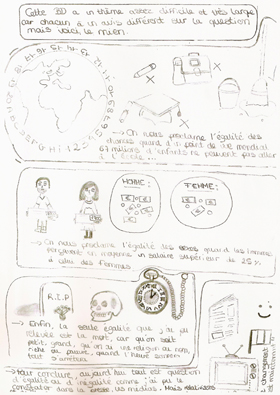 Cette BD a un thème assez difficile et très large
car chacun à un avis différent sur la question
mais voici le mien.
→ On nous proclame l'égalité des
chances quand d'un point de vue mondial
67 millions d'enfants ne peuvent pas aller
à l'école...
HOMME :
FEMME :
→ On nous proclame l'égalité les quand les hommes
perçoivent en moyenne un salaire supérieur de 25%
à celui des femmes
R.I.P
→ Enfin, la seule égalité que j'ai pu
relever est la mort, car qu'on soit
petit, grand, qu'on ait une religion ou non,
riche ou pauvre, quand l'heure sonnera
→ Pour conclure, aujourd'hui tout est question
d'égalité ou d'inégalité comme j'ai pu le
constater dans la presse, les médias. Mais